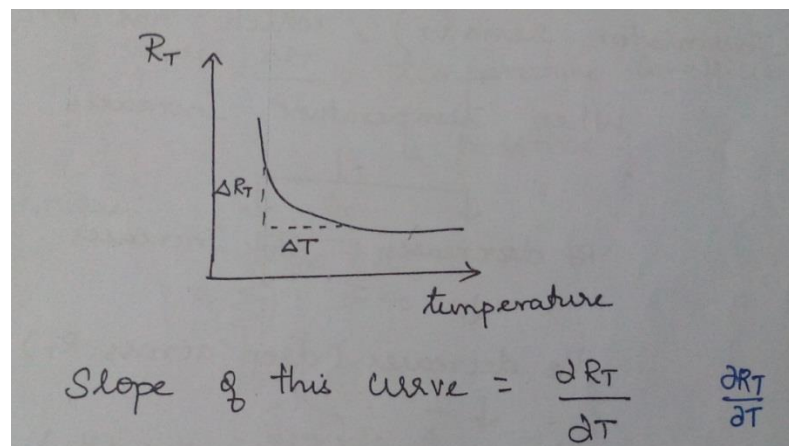 R_T
ΔR_T
ΔT
temperature
Slope of this curve = ∂R_T/∂T ∂R_T/∂T